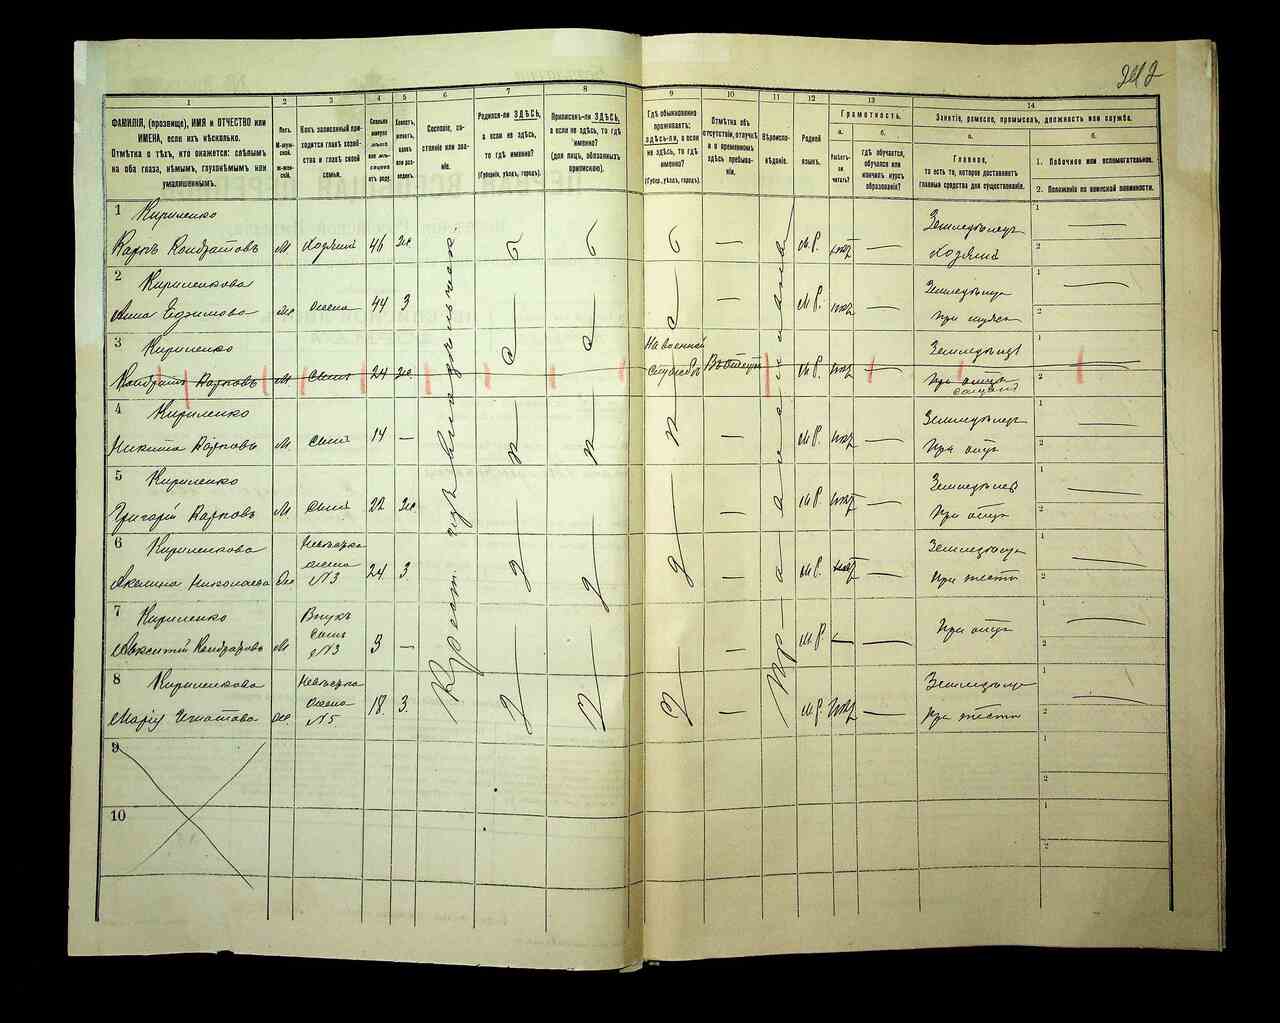 242
1
2
3
4
5
6
7
8
9
10
11
12
13
14
ФАМИЛІЯ, (прозвище), ИМЯ и ОТЧЕСТВО или
ИМЕНА, если ихъ нѣсколько.
Отмѣтка о тѣхъ, кто окажется: слѣпымъ
на оба глаза, нѣмымъ, глухонѣмымъ или
умалишеннымъ.
Полъ.
М-муж-
ской.
Ж-жен-
скій.
Какъ записанный при-
ходится главѣ хозяй-
ства и главѣ своей
семьи.
Сколько
минуло
лѣтъ
или мѣ-
сяцевъ
отъ роду.
Холостъ,
женатъ,
вдовъ
или раз-
веденъ.
Сословіе, со-
стояніе или зва-
ніе.
Родился-ли ЗДѢСЬ,
а если не здѣсь,
то гдѣ именно?
(Губернія, уѣздъ, городъ).
Приписанъ-ли ЗДѢСЬ,
а если не здѣсь, то гдѣ
именно?
(для лицъ, обязанныхъ
припискою).
Гдѣ обыкновенно
проживаетъ:
здѣсь-ли, а если
не здѣсь, то гдѣ
именно?
(Губер., уѣздъ, городъ).
Отмѣтка объ
отсутствіи, отлучкѣ
и о временномъ
здѣсь пребыва-
ніи.
Вѣроиспо-
вѣданіе.
Родной
языкъ.
Грамотность.
а.
Умѣетъ-
ли
читать?
б.
гдѣ обучается,
обучался или
кончилъ курсъ
образованія?
Занятіе, ремесло, промыселъ, должность или служба.
а.
Главное,
то есть то, которое доставляетъ
главныя средства для существованія.
б.
1. Побочное или вспомогательное.
2. Положеніе по воинской повинности.
1 Кириленко
Карпъ Кондратовъ М Хозяинъ 46 Же М.Р. нѣтъ — Земледѣлецъ
Хозяинъ
2 Кириленкова
Анна Ефимова Же Жена 44 З М.Р. нѣтъ — Земледѣлица
при мужѣ
3 Кириленко
Кондратъ Карповъ М Сынъ 24 Же. На военной
службѣ М.Р. нѣтъ — Земледѣлецъ
При отцѣ
4 Кириленко
Никита Карповъ М Сынъ 14 — М.Р. нѣтъ — Земледѣлецъ
При отцѣ
5 Кириленко
Григорій Карповъ М. Сынъ 22 Же М.Р. нѣтъ — Земледѣлецъ
При отцѣ
6 Кириленкова
Акелина Николаева Же Невѣстка
жена
№3 24 З. М.Р. нѣтъ — Земледѣлица
При тестѣ
7 Кириленко
Кондратовъ М Внукъ
сынъ
№3 3 — М.Р. — — При отцѣ
8 Кириленкова
Марія Игнатова Же Невѣстка
жена
№5 18. З. М.Р. нѣтъ — Земледѣлица
При тестѣ
Крест. изъ владѣльческ
Православное
9
10